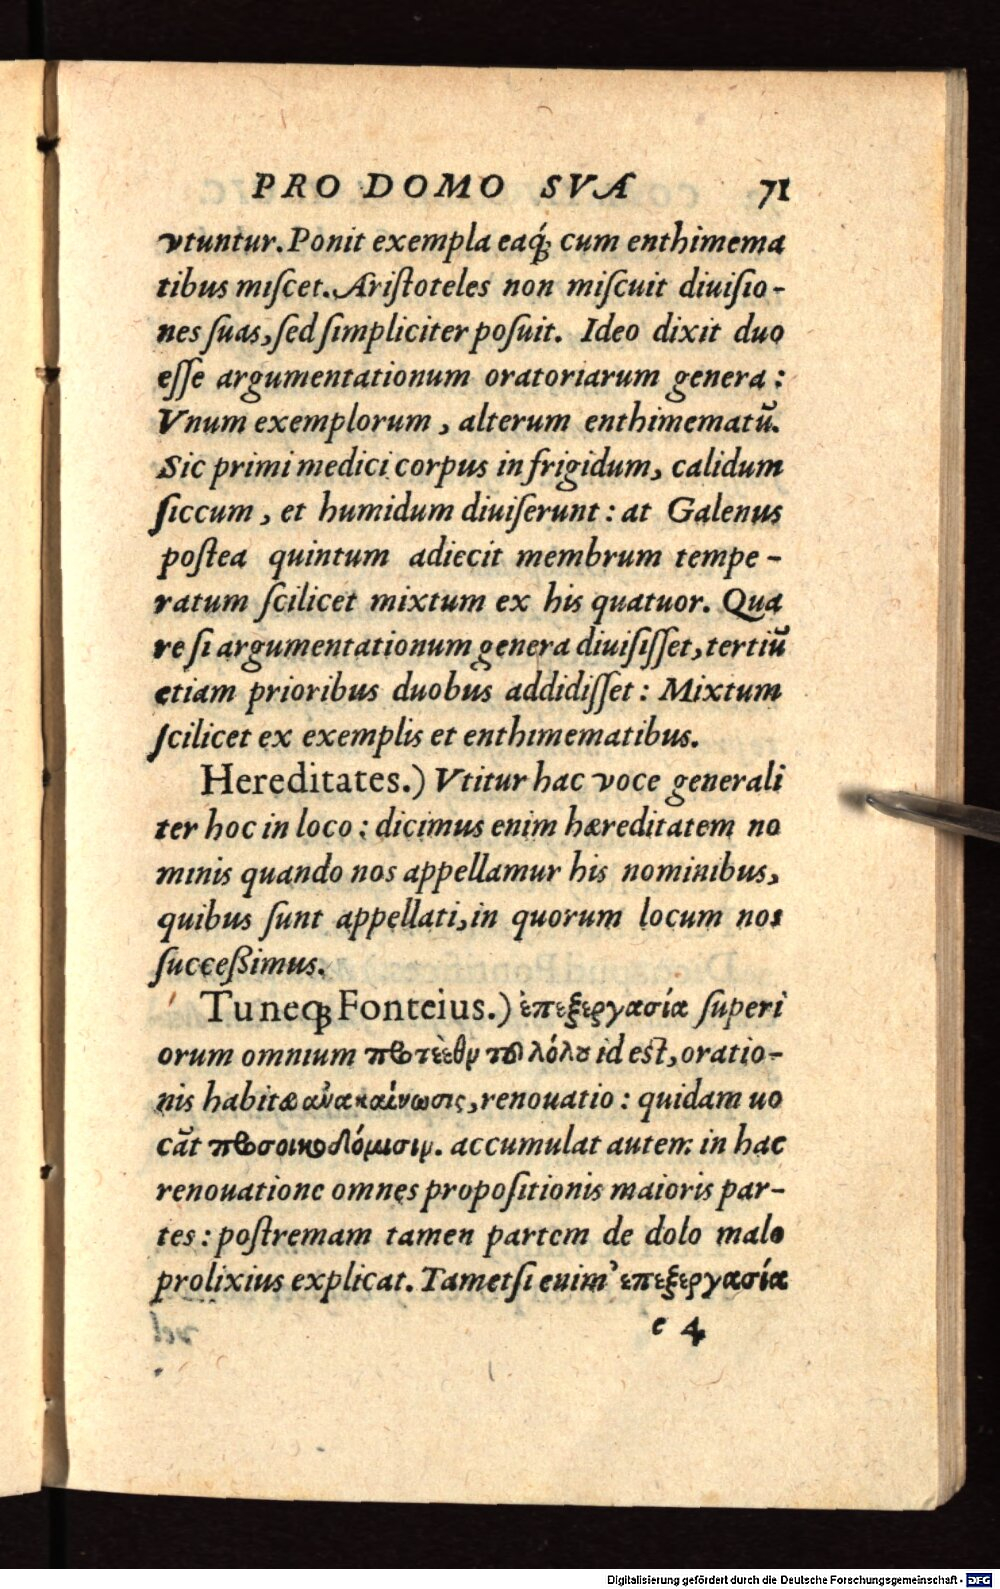 PRO DOMO SVA 71
vtuntur. Ponit exempla eaq́; cum enthimema
tibus miſcet. Ariſtoteles non miſcuit diuiſio-
nes ſuas, ſed ſimpliciter poſuit. Ideo dixit duo
eſſe argumentationum oratoriarum genera:
Vnum exemplorum, alterum enthimematū.
Sic primi medici corpus in frigidum, calidum
ſiccum, et humidum diuiſerunt: at Galenus
poſtea quintum adiecit membrum tempe-
ratum ſcilicet mixtum ex his quatuor. Qua
re ſi argumentationum genera diuiſiſſet, tertiū
etiam prioribus duobus addidiſſet: Mixtum
ſcilicet ex exemplis et enthimematibus.
Hereditates.) Vtitur hac voce generali
ter hoc in loco: dicimus enim hæreditatem no
minis quando nos appellamur his nominibus,
quibus ſunt appellati, in quorum locum nos
ſucceßimus.
Tu neq; Fonteius.) ἐπεξεργασία ſuperi
orum omnium id eſt, oratio-
nis habitæ ἀνακαίνωσις, renouatio: quidam uo
cāt προσοικοδόμισιν. accumulat autem in hac
renouatione omnes propoſitionis maioris par-
tes: poſtremam tamen partem de dolo malo
prolixius explicat. Tametſi enim ἐπεξεργασία
e 4
Digitalisierung gefördert durch die Deutsche Forschungsgemeinschaft - DFG